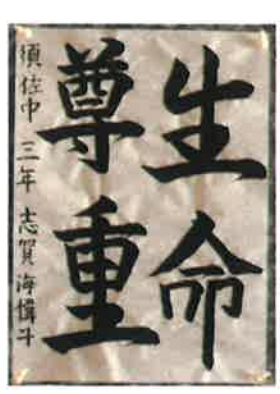 生命
尊重
須佐中 三年 志賀 海慎斗